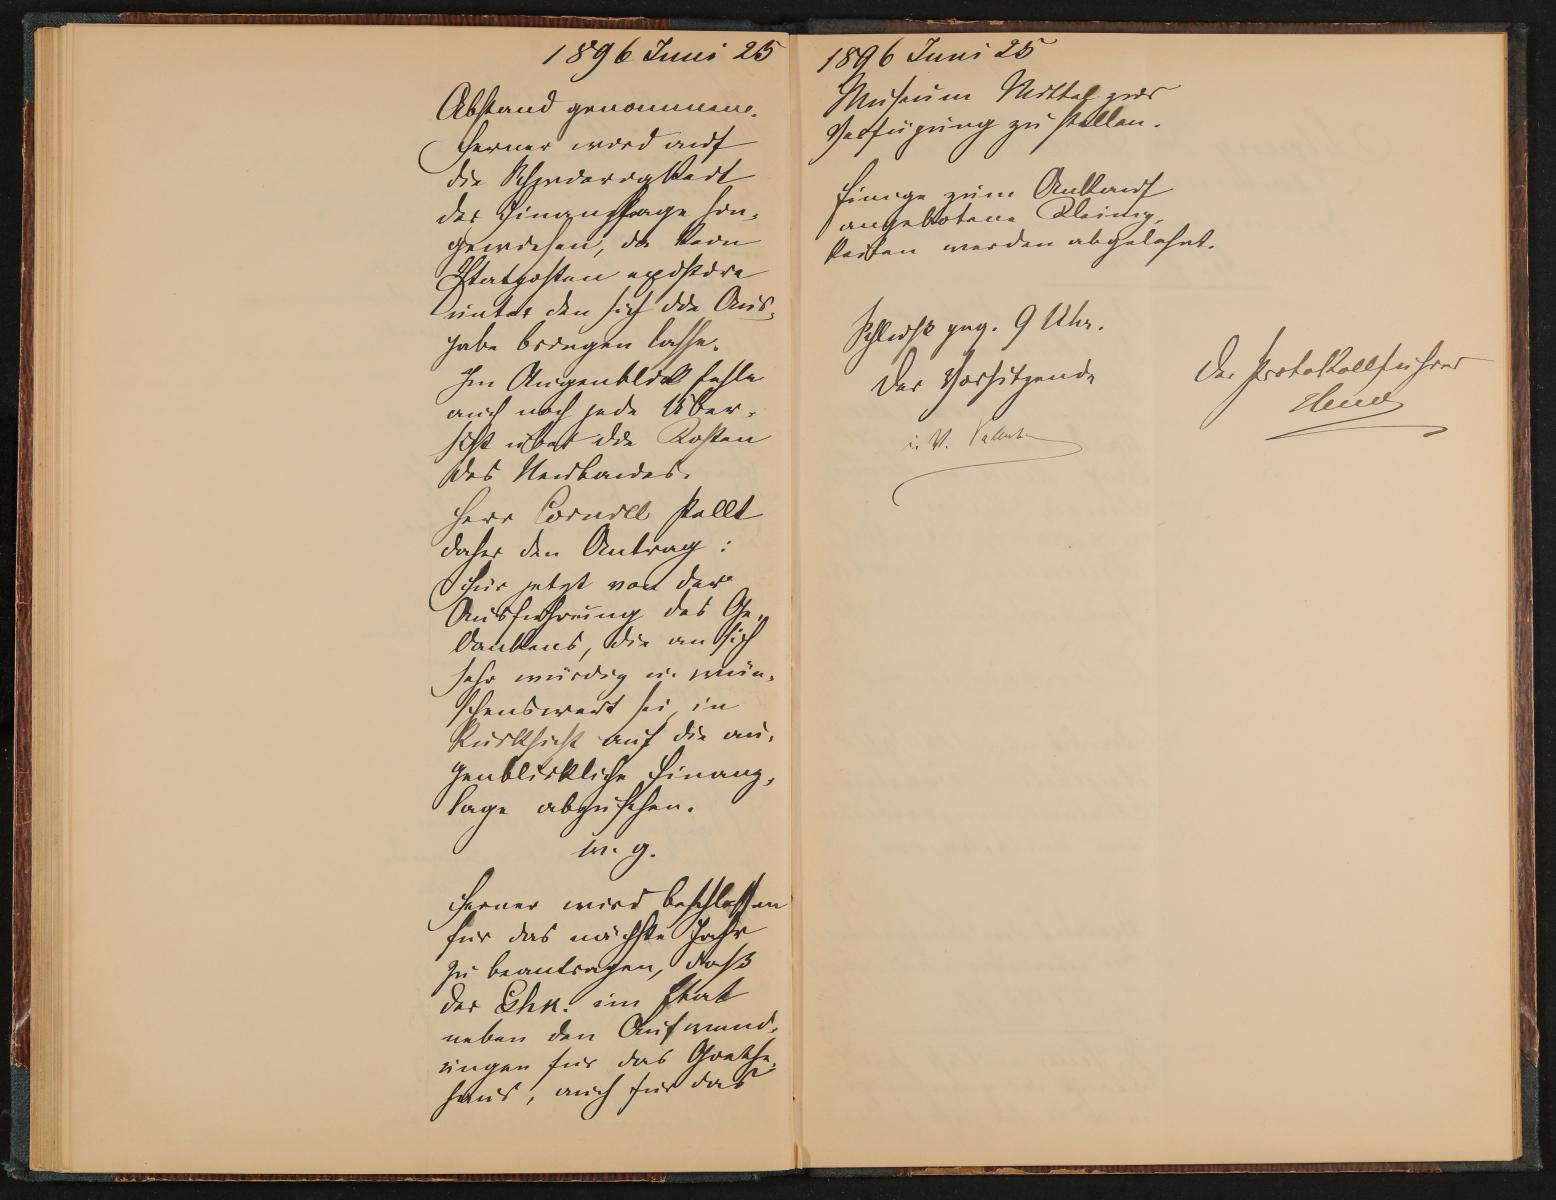 1896 Juni 25
Abstand genommen.
Ferner wird auf
die Schwierigkeit
der Finanzfrage hin-
gewiesen, da kein
Etatposten existire
unter den sich die Aus-
gabe bringen lasse.
Im Augenblick fehle
auch noch jede Über-
sicht über die Kosten
des Neubaues.
Herr Cornill stellt
daher den Antrag:
Für jetzt von der
Ausführung des Ge-
dankens, die an sich
sehr würdig u. wün-
schenswert sei, in
Rücksicht auf die au-
genblickliche Finanz-
lage abzusehen.
w. g.
Ferner wird beschlossen
für das nächste Jahr
zu beantragen, daß
der im Etat
neben den Aufwend-
ungen für das Goethe-
haus, auch für das
1896 Juni 25
Museum Mittel zur
Verfügung zu stellen.
Einige zum Ankauf
angebotene Kleinig-
keiten werden abgelehnt.
Schluß geg. 9 Uhr.
Der Vorsitzende
i. V. Valentin
Der Protokollführer